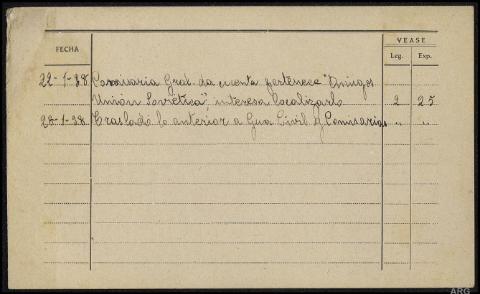 FECHA
VEASE
Leg. Exp.
22-1-38 Comisaria Gral. da cuenta pertenece "Amigos
Unión Sovietica", interesa localizarlo 2 25
28-1-38 Traslado lo anterior a Gua Civil y Comisarias " "
ARG